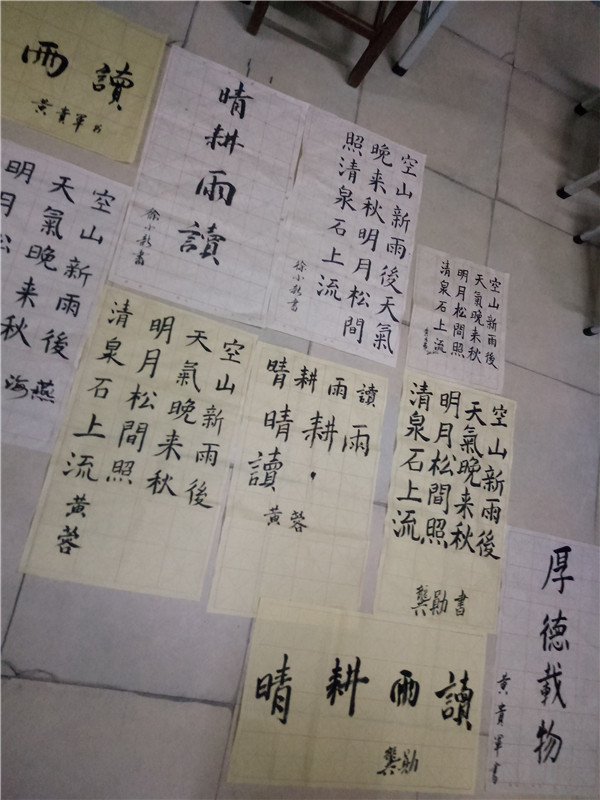 雨讀
黄貴軍书
晴耕雨讀
徐小彭書
空山新雨後天氣
晚来秋明月松間
照清泉石上流
徐小彭書
空山新雨後
天氣晚来秋
明月松間照
清泉石上流
空山新雨後
天氣晚来秋
明月松
海燕
空山新雨後
天氣晚来秋
明月松間照
清泉石上流
黄蓉
晴耕雨讀
晴耕雨
讀
黄蓉
空山新雨後
天氣晚来秋
明月松間照
清泉石上流
龔勛書
晴耕雨讀
龔勛
厚德載物
黄貴軍書